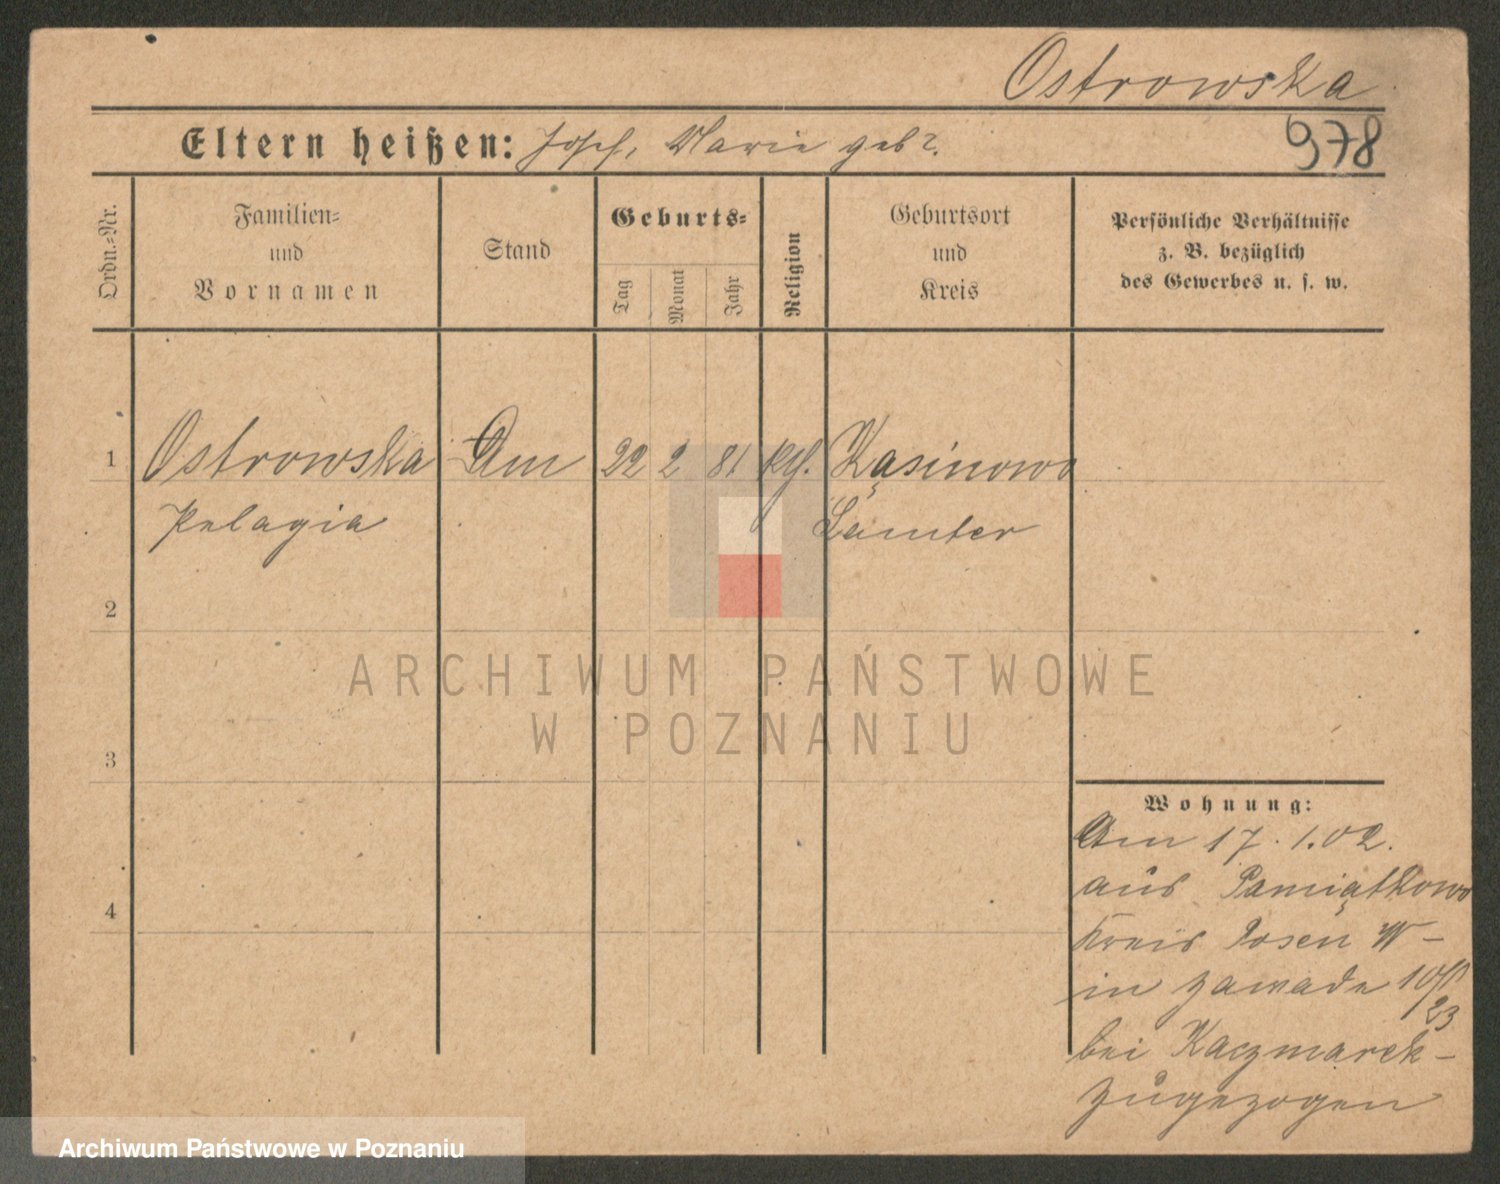 Ostrowska
Eltern heißen: Josef, Marie geb?.
978
Ordn.=Nr.
Familien=
und
Vornamen
Stand
Geburts=
Tag
Monat
Jahr
Religion
Geburtsort
und
Kreis
Persönliche Verhältnisse
z. B. bezüglich
des Gewerbes u. s. w.
1 Ostrowska 22 2 81 Kąsinowo
Pelagia Samter
2
3
4
ARCHIWUM PAŃSTWOWE
W POZNANIU
Wohnung:
Am 17. 1. 02.
aus Pamiątkowo
Kreis Posen W -
in Zawade
bei Kaczmarek -
zugezogen
Archiwum Państwowe w Poznaniu